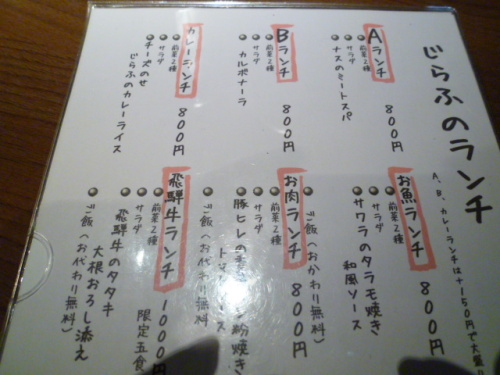 じらふのランチ
A、B、カレーランチは+150円で大盛
Aランチ 800円
前菜2種
サラダ
ナスのミートスパ
Bランチ 800円
前菜2種
サラダ
カルボナーラ
カレーランチ 800円
前菜2種
サラダ
チーズのせ
じらふのカレーライス
お魚ランチ 800円
前菜2種
サラダ
サワラのタラモ焼き
和風ソース
ご飯(おかわり無料)
お肉ランチ 800円
前菜2種
サラダ
豚ヒレの 粉焼き
ト ス
ご飯(お代わり無料)
飛騨牛ランチ 1000円
前菜2種 限定五食
サラダ
飛騨牛のタタキ
大根おろし添え
ご飯(お代わり無料)